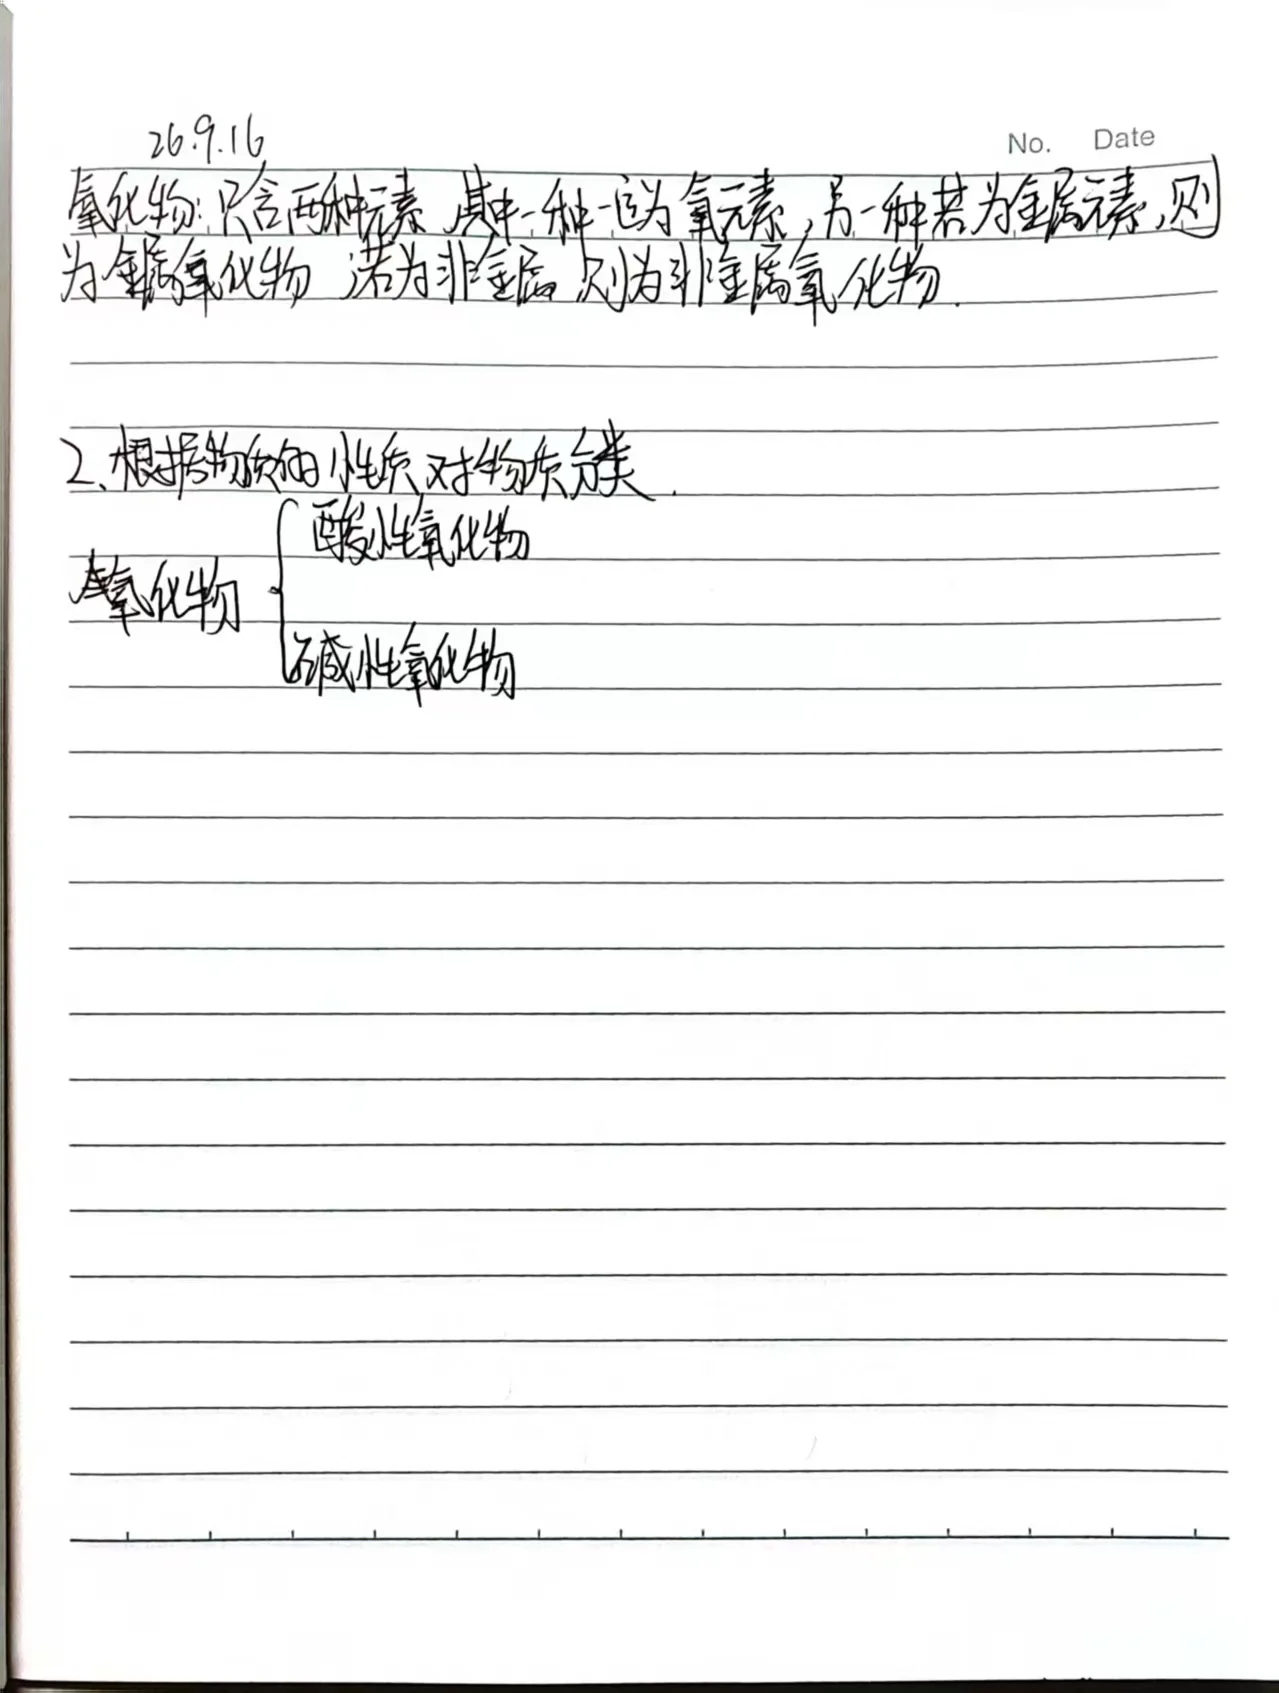 26.9.16
No. Date
氧化物:只含两种元素 其中一种一定为氧元素,另一种若为金属元素,则
为金属氧化物 若为非金属 则为非金属氧化物.
2、根据物质的性质对物质分类.
酸性氧化物
氧化物
碱性氧化物